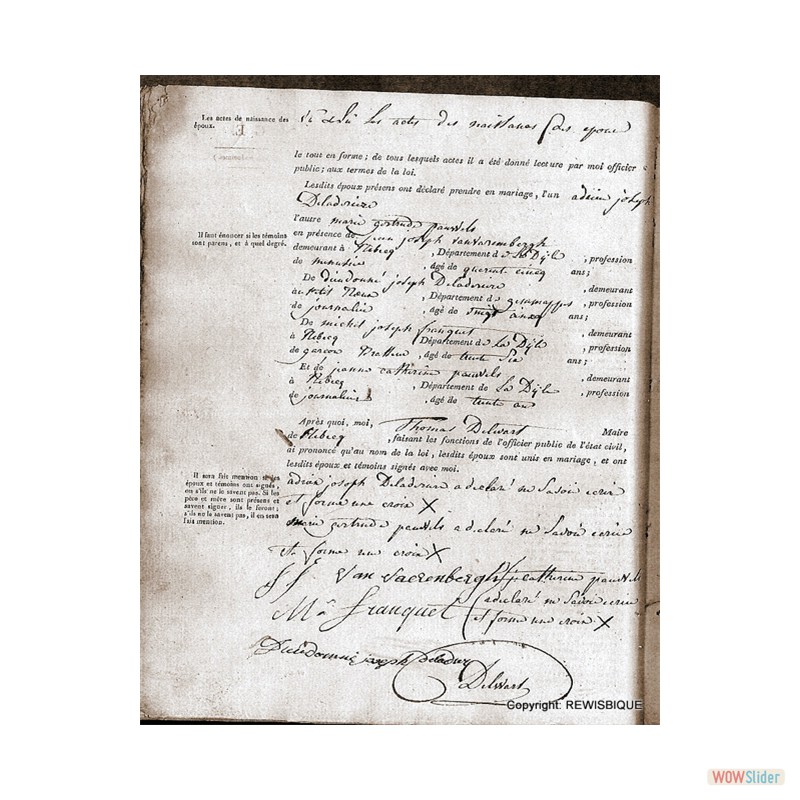 Les actes de naissance des
époux.
Vu et Lu les actes des naissances des epoux
le tout en forme; de tous lesquels actes il a été donné lecture par moi officier
public; aux termes de la loi.
Lesdits époux présens ont déclaré prendre en mariage, l'un adrien joseph
Deladrière
l'autre marie gertrude pauvels
Il faut énoncer si les témoins
sont parens, et à quel degré.
en présence de jean joseph
demeurant à Rebecq, Département de La Dyle, profession
de menusier, âgé de quarent cincq ans;
De dieudonné joseph Deladrière, demeurant
au petit Rœux, Département de gemmappes, profession
de journalier, âgé de vingt ans;
De michel joseph franquet, demeurant
à Rebecq Département de La Dyle, profession
de garcon Brasseur, âgé de trente Six ans;
Et de jeanne catherine pauvels, demeurant
à Rebecq, Département de La Dyle, profession
de journalier, âgé de trente an
Après quoi, moi, Thomas Delwart Maire
de Rebecq, faisant les fonctions de l'officier public de l'état civil,
ai prononcé qu'au nom de la loi, lesdits époux sont unis en mariage, et ont
lesdits époux et témoins signés avec moi.
Il sera fait mention si les
époux et témoins ont signés,
ou s'ils ne le savent pas. Si les
père et mère sont présens et
savent signer, ils le feront;
s'ils ne le savent pas, il en sera
fait mention.
adrien joseph Deladrière a declaré ne Savoir ecrire
et forme une croix X
marie gertrude pauvels a declaré ne Savoir ecrire
et forme une croix X
J J Van Varenbergh
j catherine pauvels
a declaré ne Savoir ecrire
et forme une croix X
M j franquet
Dieudonné joseph Deladrier
Delwart
Copyright: REWISBIQUE
WOWSlider